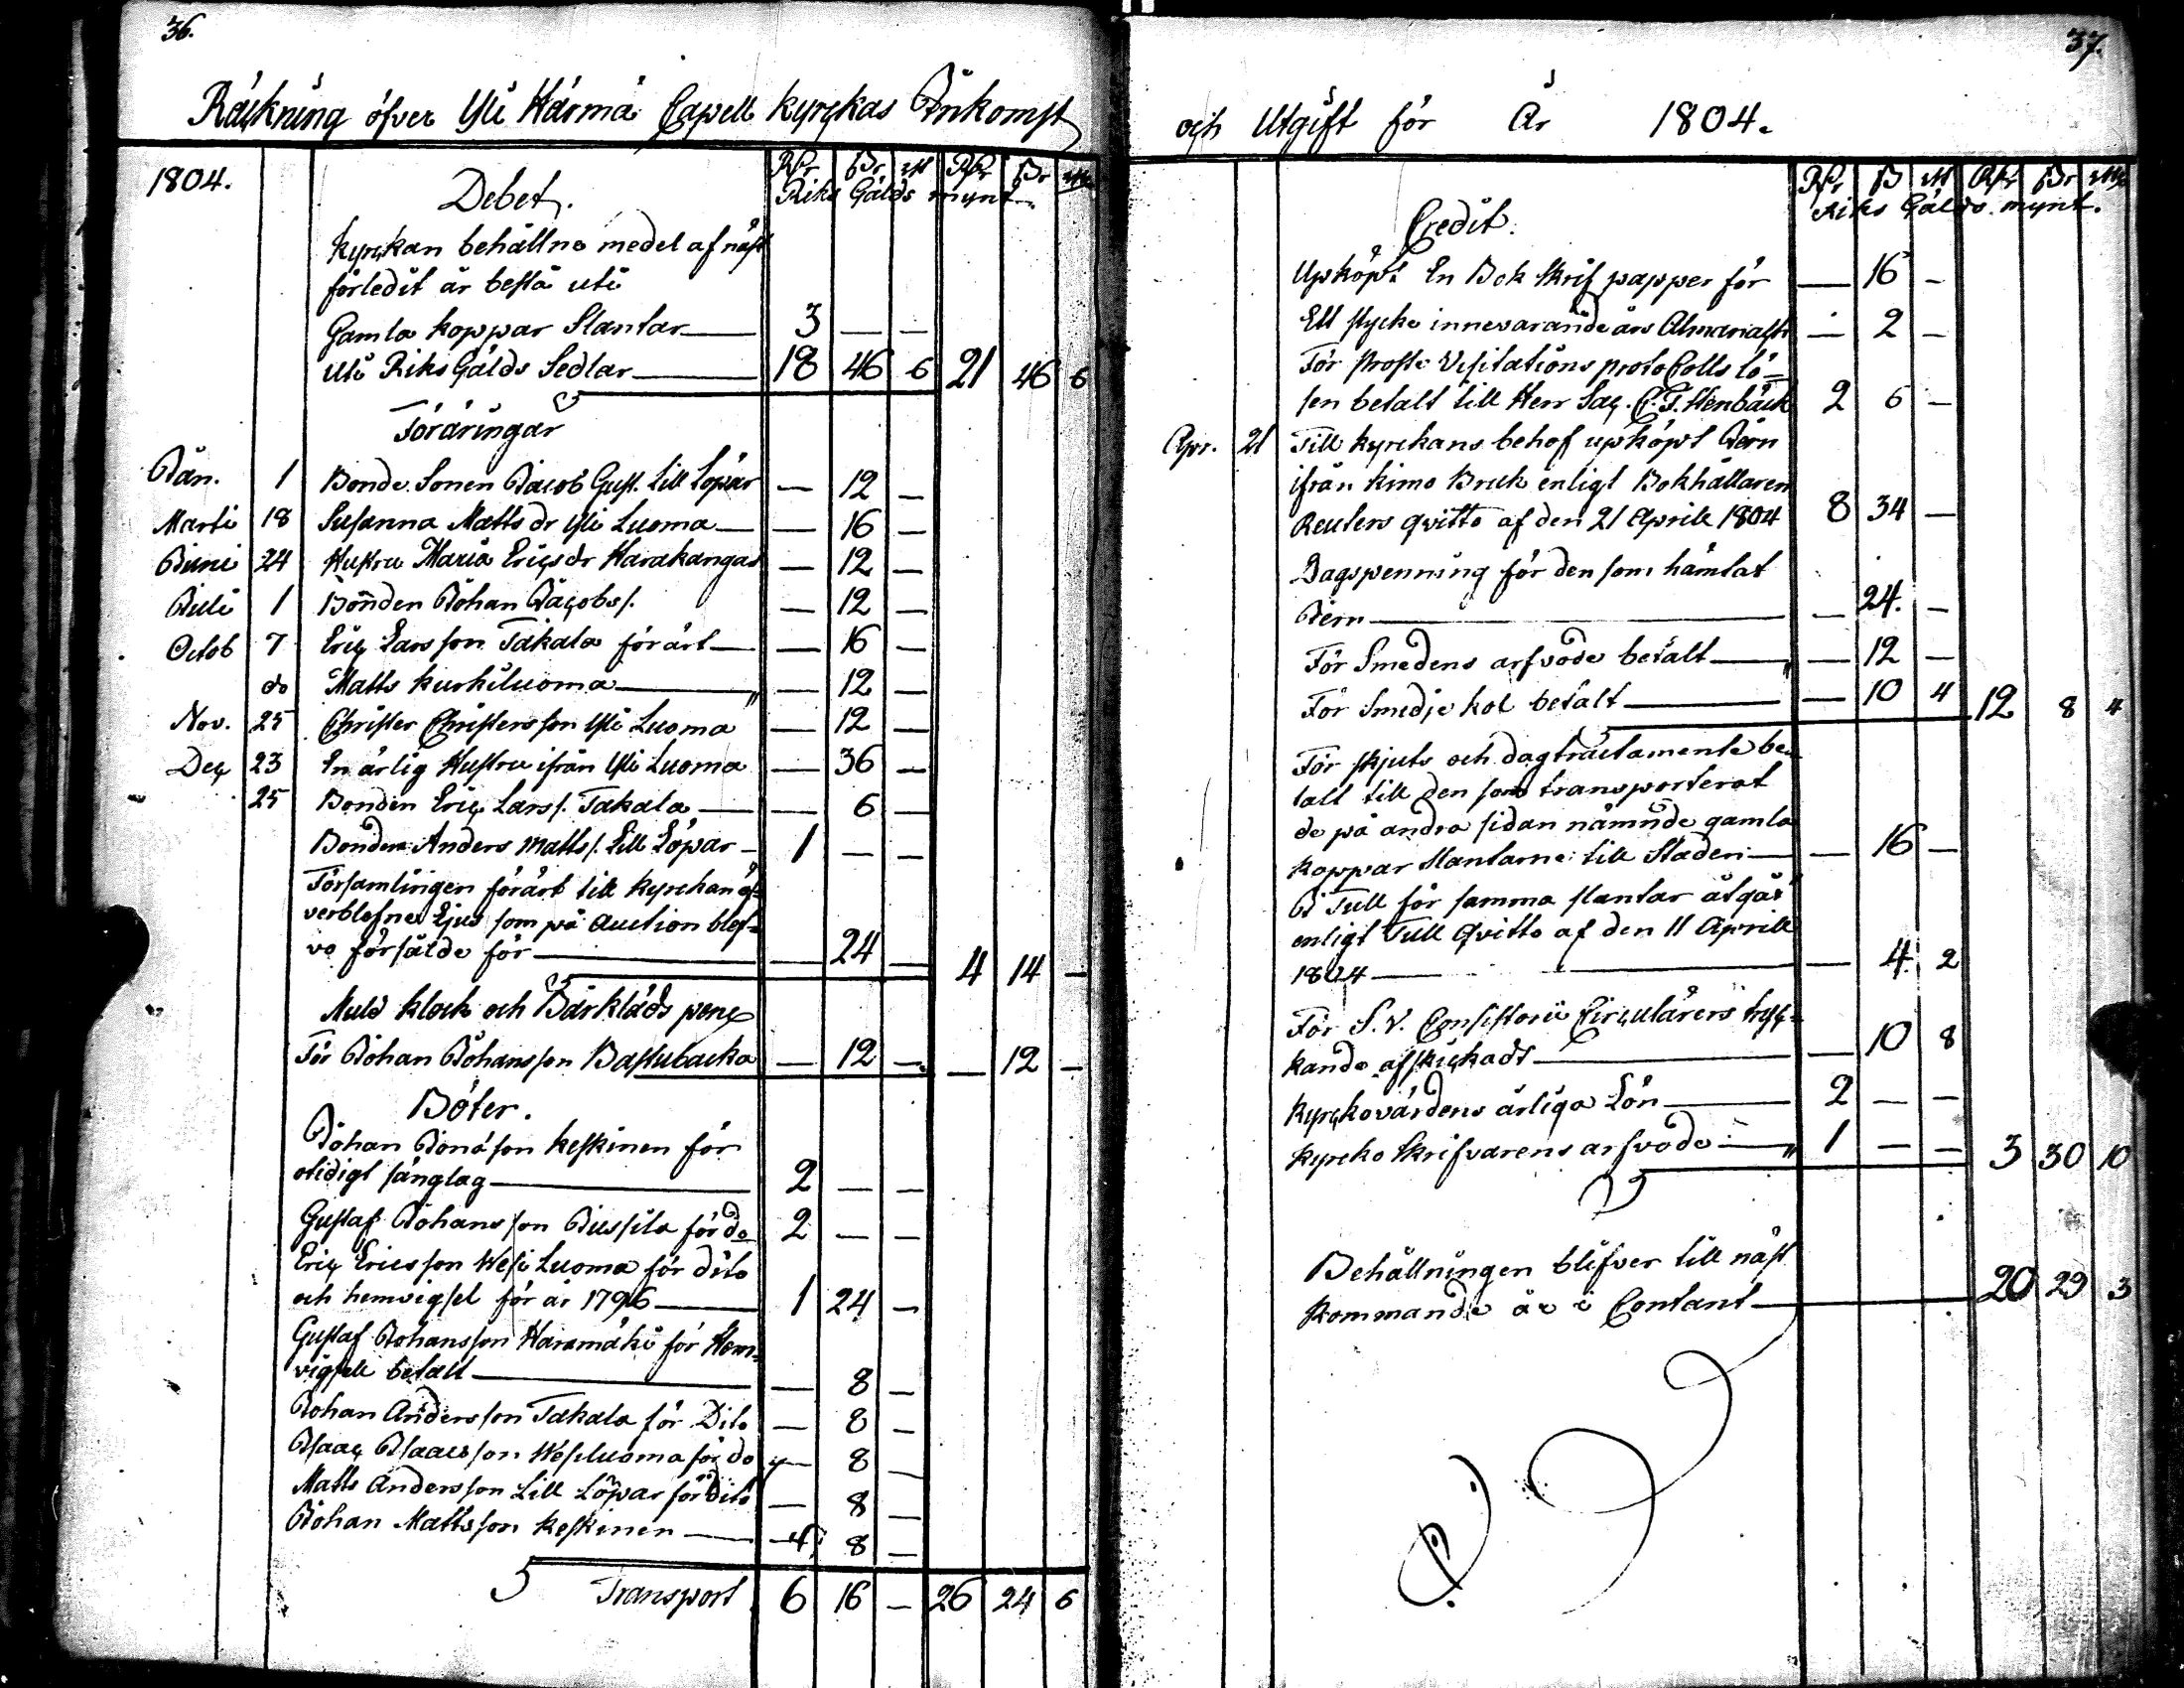 36.
Räckning öfver Yli Härmä Capell kyrckas Inkomst
1804.
Debet.
RDr ßr rst RDr ßr rst
Riks Gälds mynt
Kyrckan behållne medel af näst
förledit år bestå uti
Gamla koppar Slantar — 3 — —
uti Riks Gälds Sedlar — 18 46 6 21 46 6
Föräringar
Jan. 1 Bonde Sonen Jacob Gust. Lill Löpar — 12 —
Marti 18 Susanna Matts dr Yli Luoma — 16 —
Juni 24 Hustru Maria Ericsdr Harakangas — 12 —
Juli 1 Bonden Johan Jacobs. — 12 —
Octob 7 Eric Larsson Takala förärt — 16 —
do Matts Kurkiluoma — 12 —
Nov. 25 Christer Christersson Yli Luoma — 12 —
Dec 23 En ärlig Hustru ifrån Yli Luoma — 36 —
25 Bonden Eric Larss. Takala — 6 —
Bonden Anders Matts. Lill Löpar — 1 — —
Församlingen förärt till kyrckan öf=
verblefne Ljus som på Auction blef=
vo försålde för — 24 — 4 14 —
Muld klock och Bårkläds peng
För Johan Johansson Bastubacka — 12 — — 12 —
Böter.
Johan Jonasson Keskinen för
otidigt sänglag — 2 — —
Gustaf Johansson Jussila för do 2 — —
Eric Ericsson Wesi Luoma för dito
och hemvigsel för år 1796 — 1 24 —
Gustaf Johansson Haramäki för Hem=
vigsell betalt — 8 —
Johan Andersson Takala för Dito — 8 —
Isaac Isaacsson Wesiluoma för do — 8 —
Matts Andersson Lill Löpar för dito — 8 —
Johan Mattsson Keskinen — 8 —
Transport 6 16 — 26 24 6
37.
och Utgift för År 1804.
RDr ß rst RDr ßr rst
Riks Gälds mynt.
Credit.
Upköpt En Bok Skrif papper för — 16 —
Ett stycke innevarande års Almanach — 2 —
För Proste Visitations protoColls lö=
sen betalt till Herr Sac. C. F. Stenbäck 2 6 —
Apr. 21 Till kyrckans behof upköpt Jern
ifrån Kimo Bruk enligt Bokhållaren
Reuters qvitto af den 21 Aprill 1804 8 34 —
Dagspenning för den som hämtat
Jern — 24. —
För Smedens arfvode betalt — 12 —
För Smedje kol betalt — 10 4 12 8 4
För skjuts och dagtractamente be=
talt till den som transporterat
de på andra sidan nämnde gamla
koppar slantarne till Staden — 16 —
I Tull för samma slantar åtgåt
enligt Tull qvitto af den 11 Aprill
1804 — 4 2
För S. V. Consistorii Circulärers tryc=
kande afskickadt — 10 8
Kyrckovärdens årliga Lön — 2 — —
Kyrcko Skrifvarens arfvode — 1 — — 3 30 10
Behållningen blifver till näst
kommande år i Contant — 20 29 3